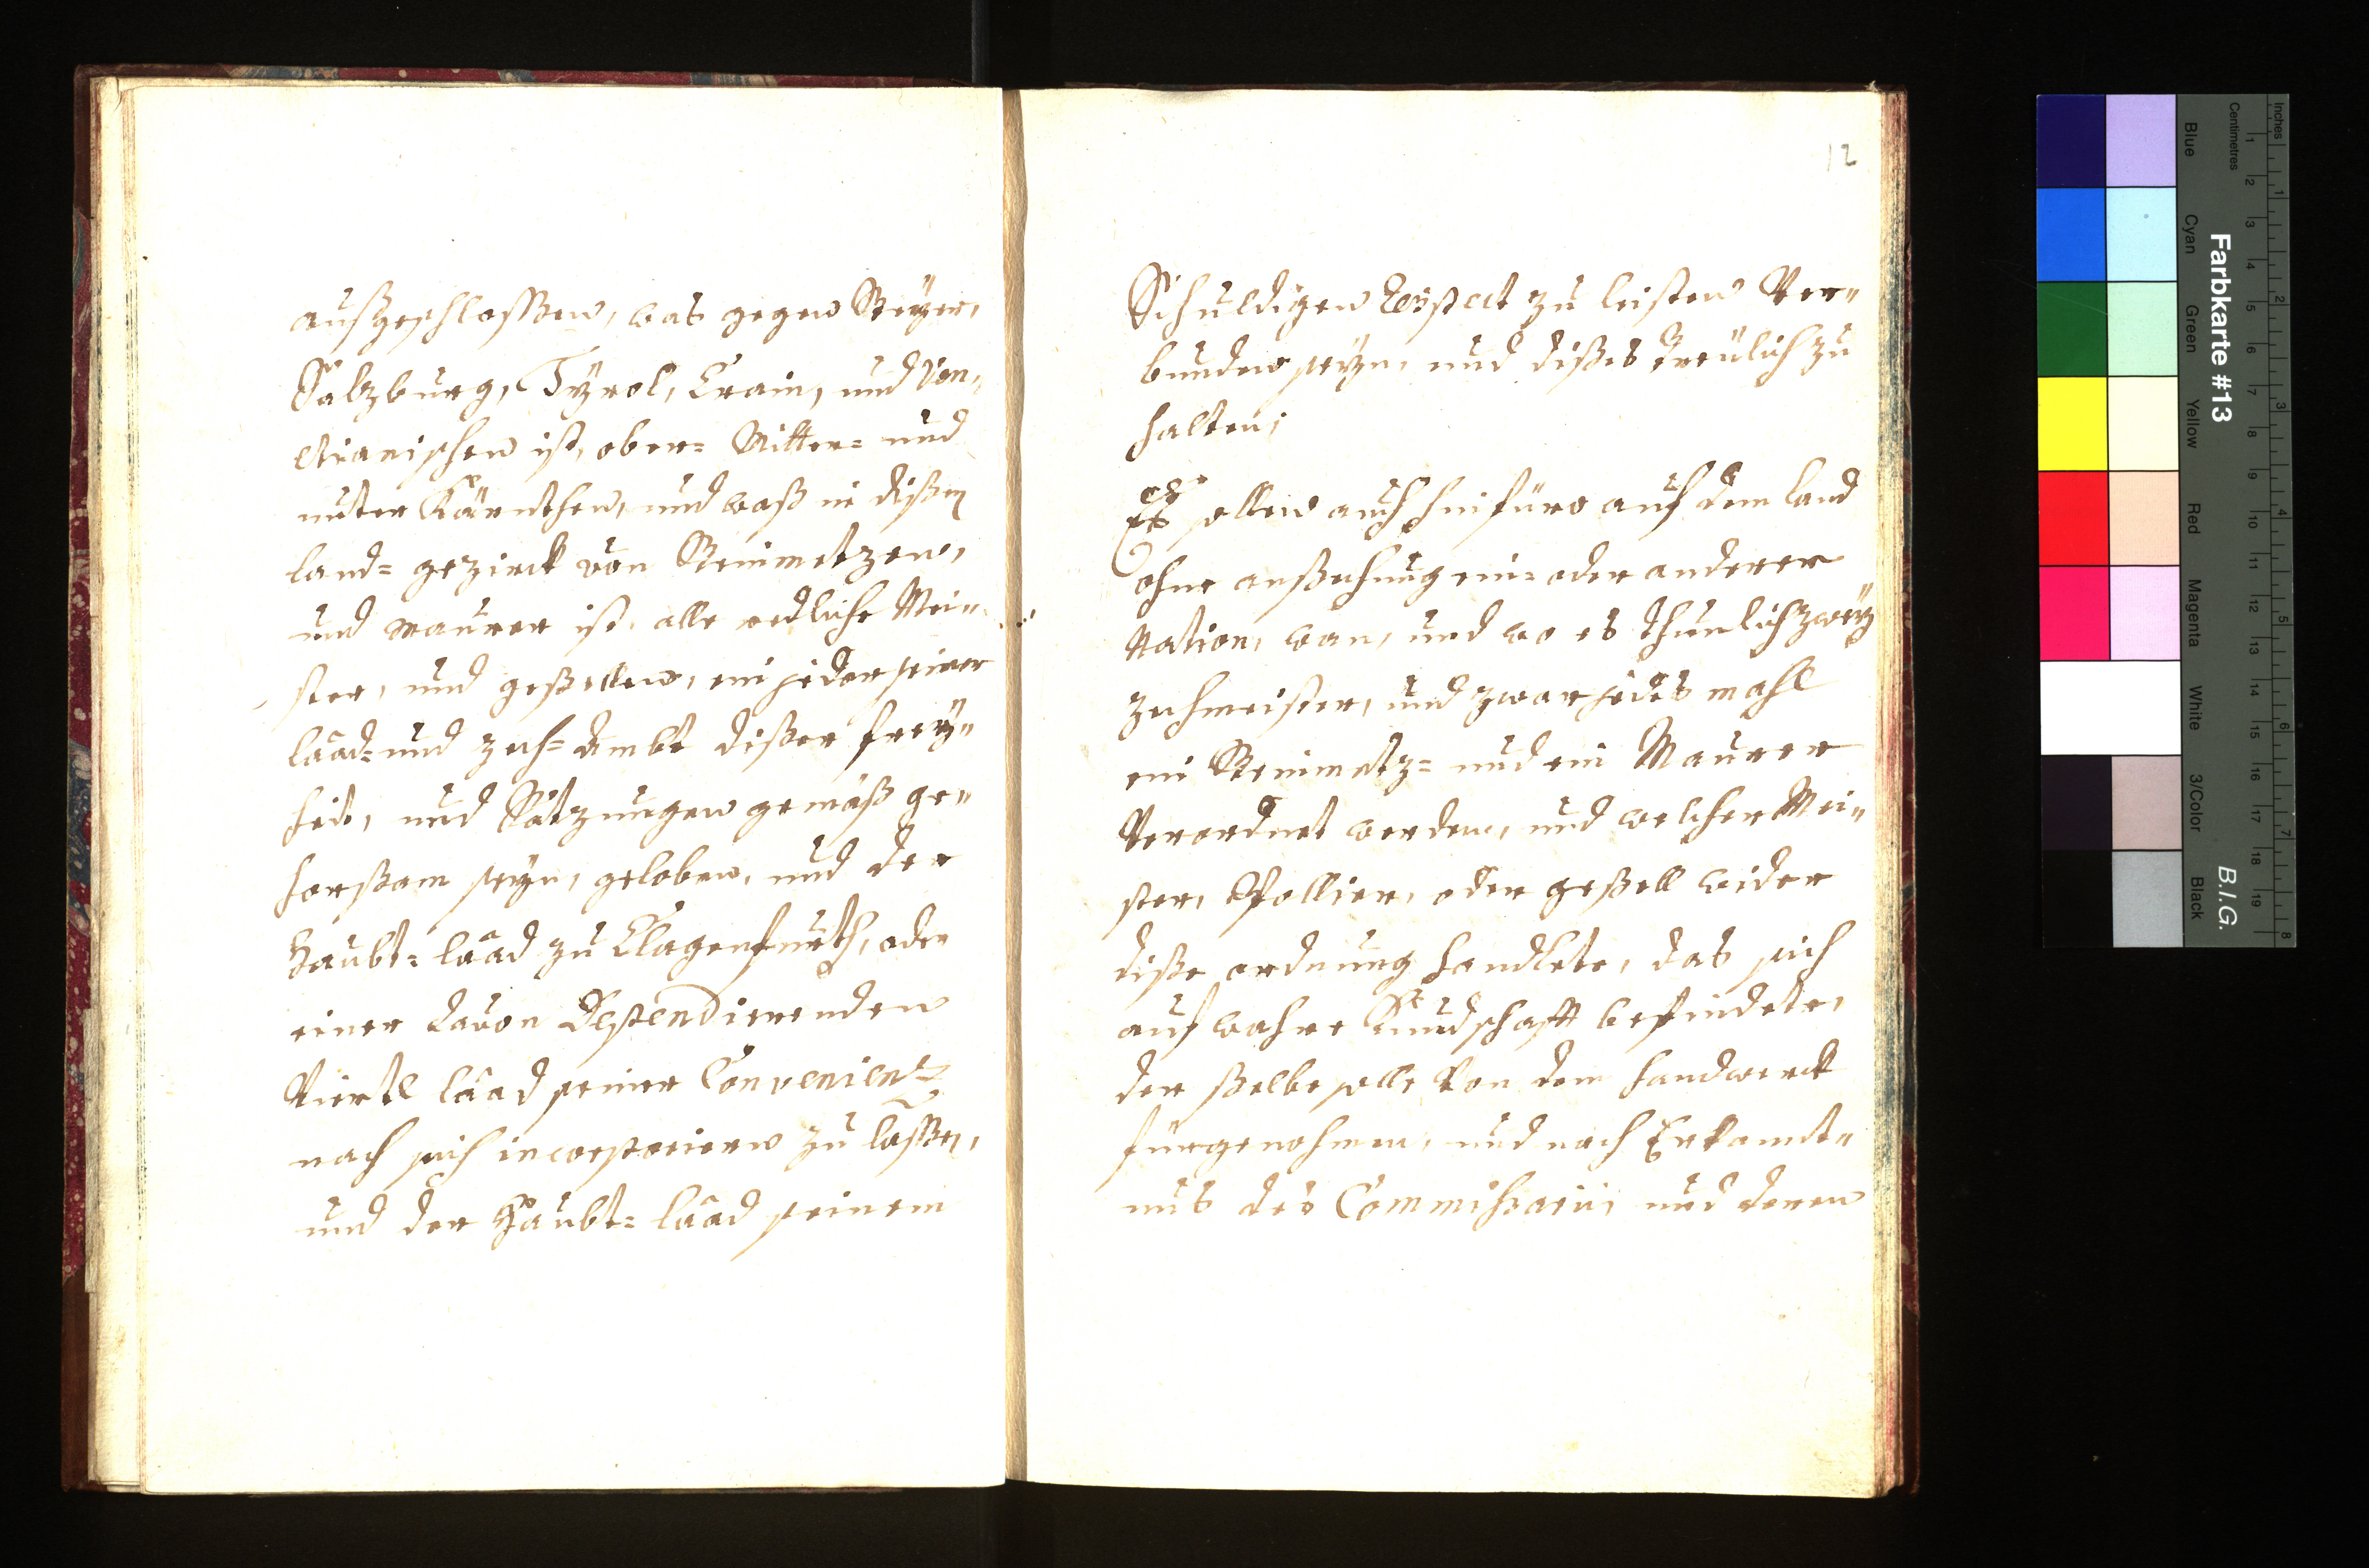 außgeschlossen, was gegen Steyer,
Salzburg, Tÿrol, Crain, und Ven„
etianischen ist, ober= Mitter= und
unter Kärnthen, und waß in dißem
land= gezirck von Steinmetzen,
und maurer ist, alle redliche Mei„
ster, und geßellen, ein jeder seiner
laad= und zech= Ambt dißer freÿ„
heit, und Satzungen gemäß ge„
horßam seyn, geloben, und der
Haubt= laad zu Clagenfurth, oder
einer davon Dependierenden
Viertl laad seiner Convenienz
nach sich incorporiern zu lassen,
und der Haubt= laad seinem
12
Schuldigen Respect zu leisten Ver„
bunden seyn, und dißes treülich zu
halten;
Es sollen auch hinfüro auf dem land
ohne anßechung ein= oder anderer
Nation, wan, und wo es thunlich zweÿ
zechmeister, und zwar jedes mahl
ein Steinmetz= und ein Maurer
Verordnet werden, und welcher Mei„
ster, Pollier, oder geßell wider
diße ordnung handlete, das sich
auf wahre Kundschafft befindete,
der ßelbe solle Von dem handwerck
fürgenohmen, und nach Erkandt„
nus des Commissarii, und deren
Farbkarte #13
B.I.G.
Inches 1 2 3 4 5 6 7 8
Centimetres 1 2 3 4 5 6 7 8 9 10 11 12 13 14 15 16 17 18 19
Blue Cyan Green Yellow Red Magenta White 3/Color Black